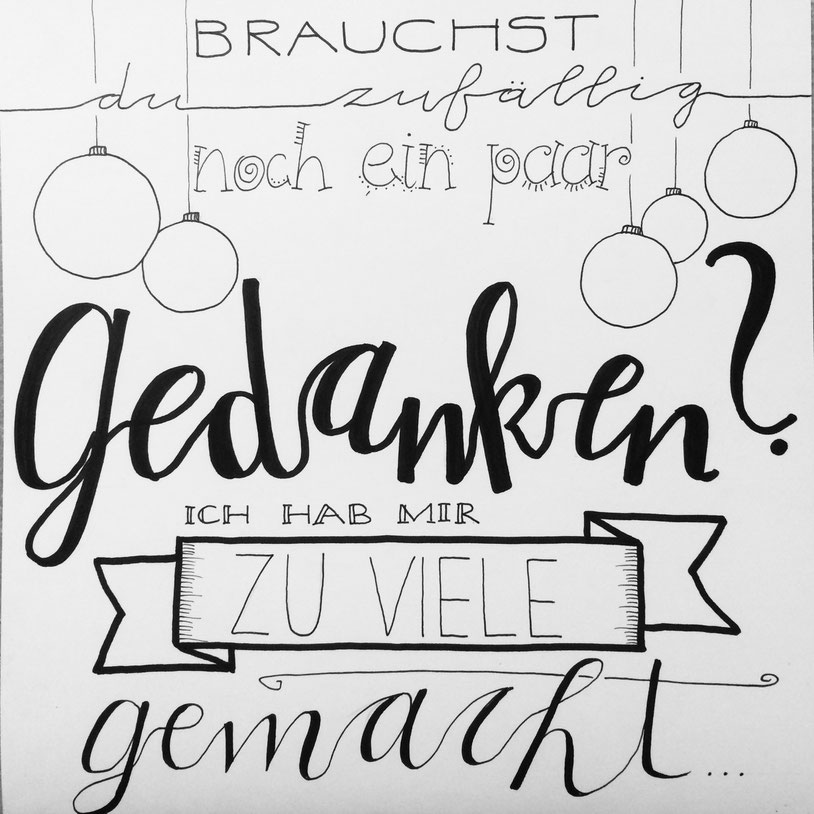 BRAUCHST
du zufällig
noch ein paar
gedanken?
ICH HAB MIR
ZU VIELE
gemacht...